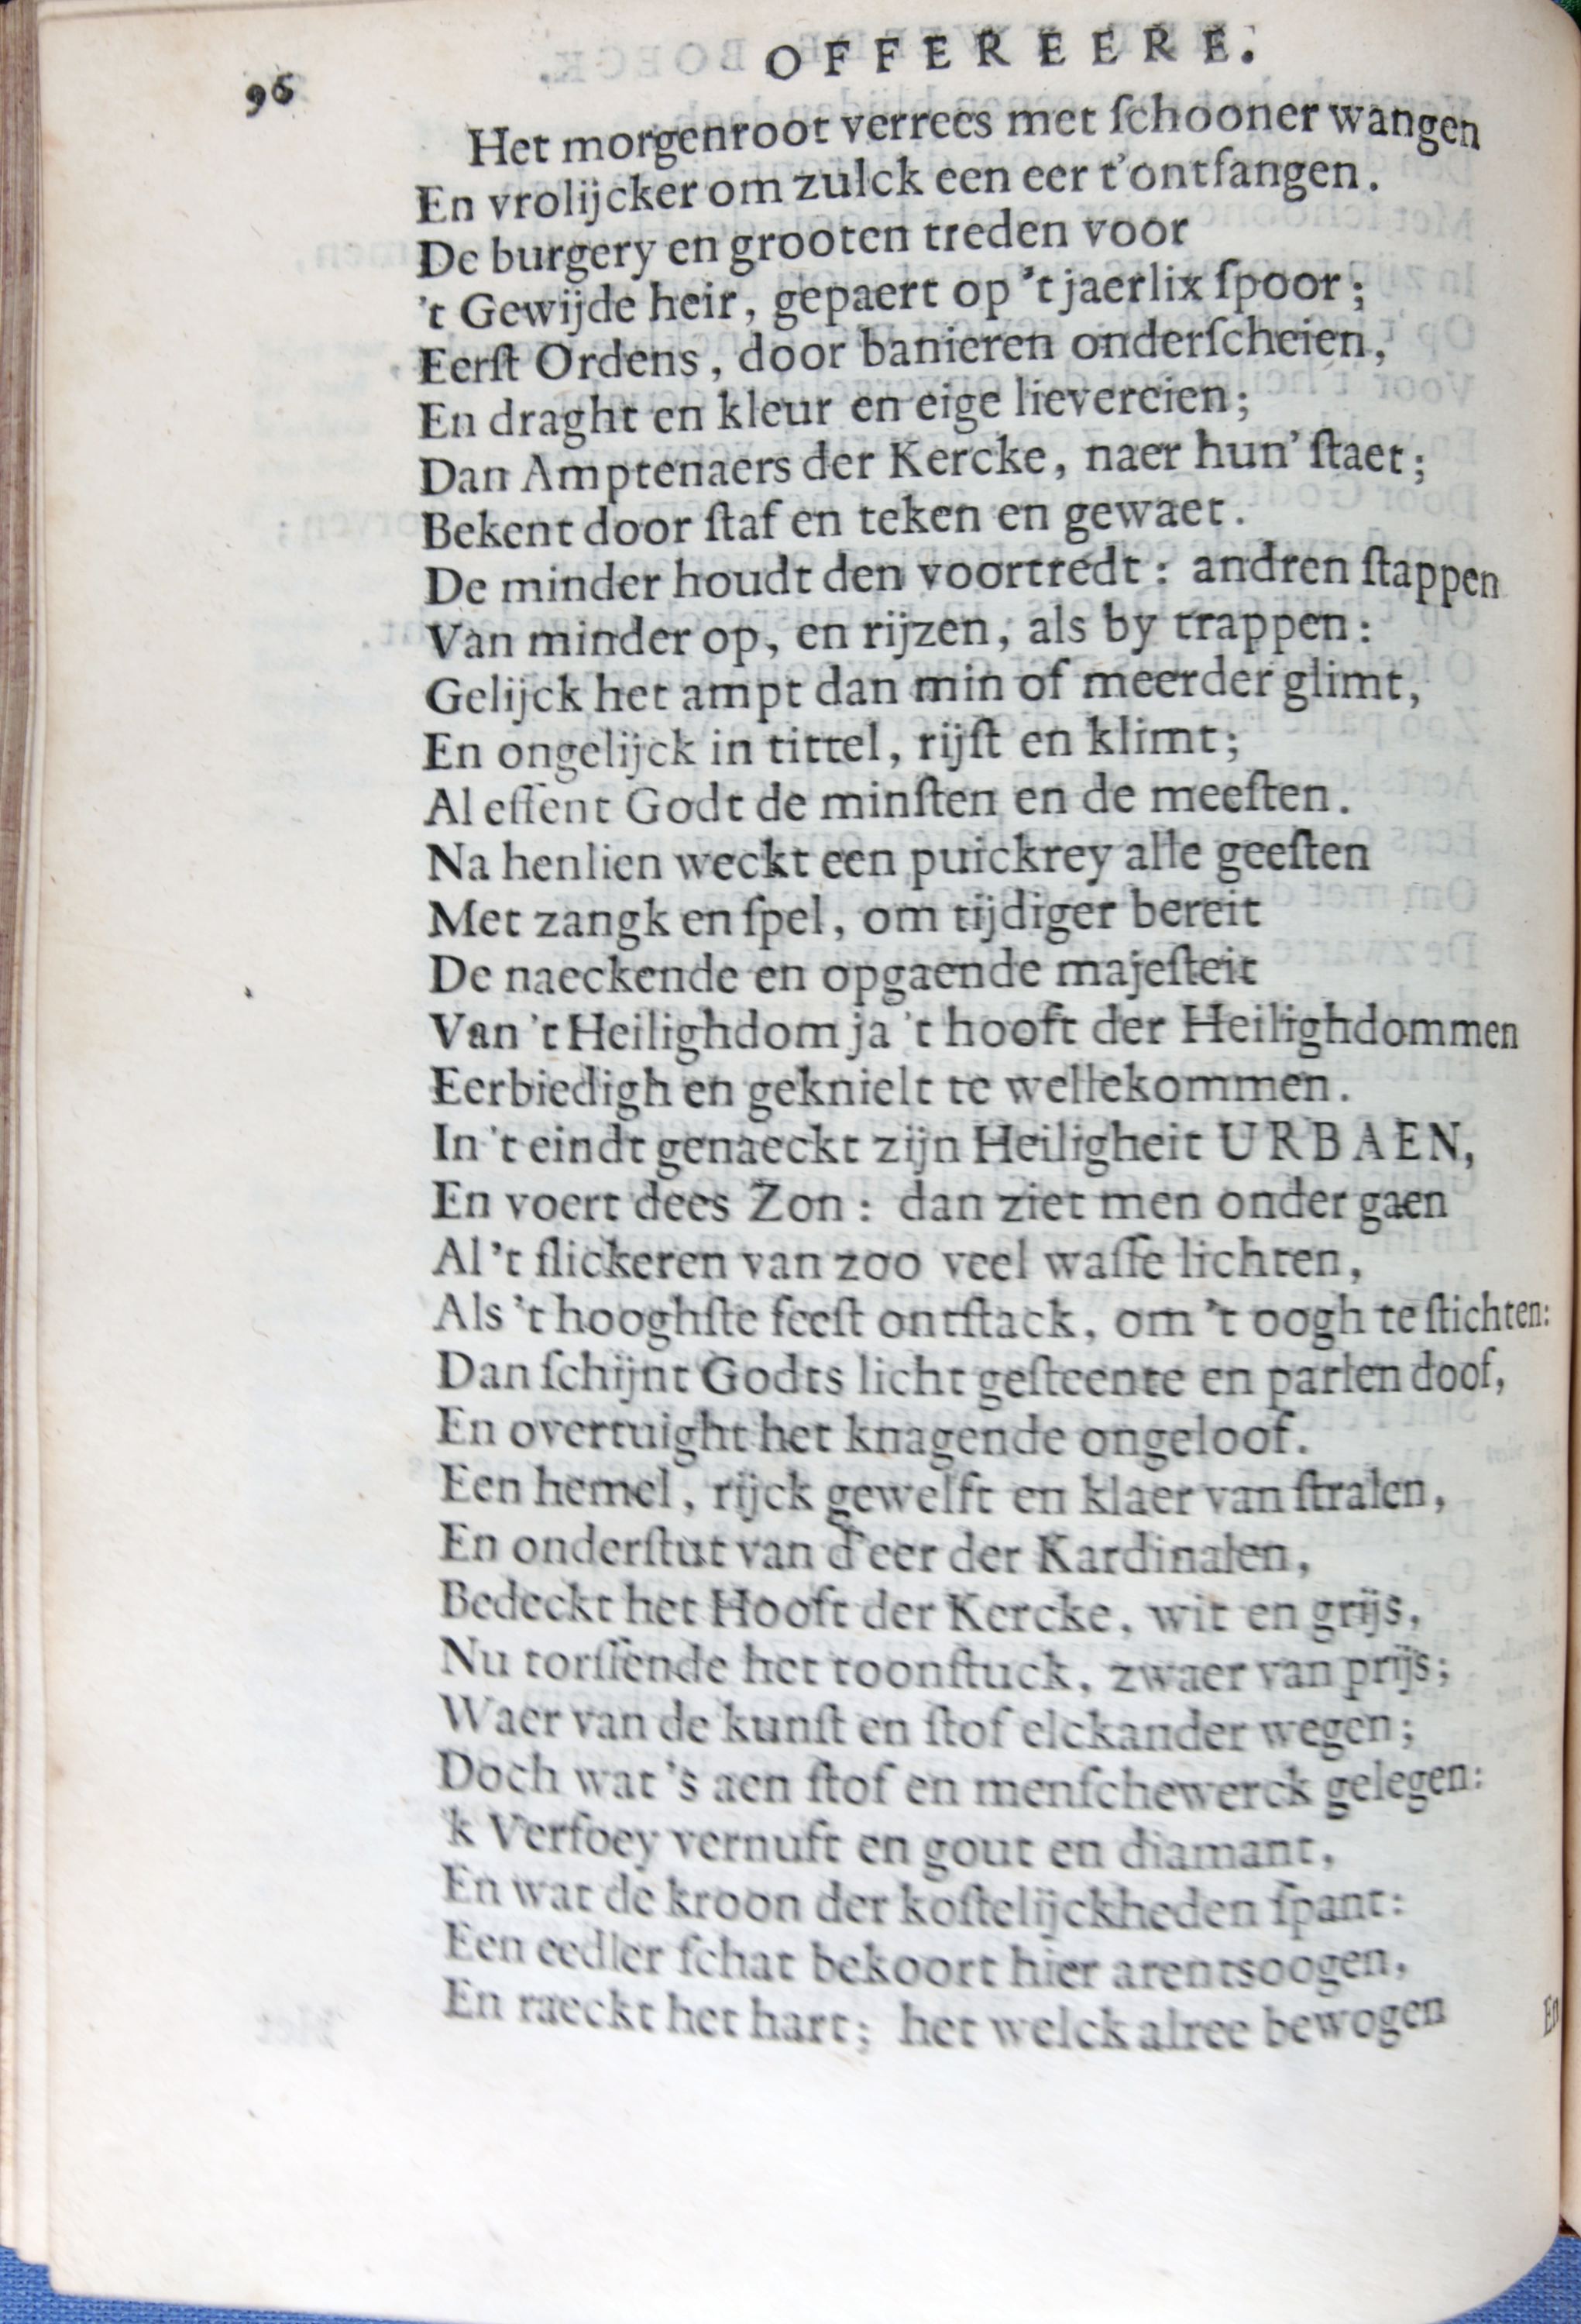 OFFEREERE.
96
Het morgenroot verrees met ſchooner wangen
En vrolijcker om zulck een eer t'ontfangen.
De burgery en grooten treden voor
't Gewijde heir, gepaert op 't jaerlix ſpoor;
Eerſt Ordens, door banieren onderſcheien,
En draght en kleur en eige lievereien;
Dan Amptenaers der Kercke, naer hun' ſtaet;
Bekent door ſtaf en teken en gewaet.
De minder houdt den voortredt: andren ſtappen
Van minder op, en rijzen, als by trappen:
Gelijck het ampt dan min of meerder glimt,
En ongelijck in tittel, rijſt en klimt;
Al eſſent Godt de minſten en de meeſten.
Na henlien weckt een puickrey alle geeſten
Met zangk en ſpel, om tijdiger bereit
De naeckende en opgaende majeſteit
Van 't Heilighdom ja 't hooft der Heilighdommen
Eerbiedigh en geknielt te wellekommen.
In 't eindt genaeckt zijn Heiligheit URBAEN,
En voert dees Zon: dan ziet men onder gaen
Al 't flickeren van zoo veel waſſe lichten,
Als 't hooghſte feeſt ontſtack, om 't oogh te ſtichten:
Dan ſchijnt Godts licht geſteente en parlen doof,
En overtuight het knagende ongeloof.
Een hemel, rijck gewelft en klaer van ſtralen,
En onderſtut van d'eer der Kardinalen,
Bedeckt het Hooft der Kercke, wit en grijs,
Nu torſſende het toonſtuck, zwaer van prijs;
Waer van de kunſt en ſtof elckander wegen;
Doch wat 's aen ſtof en menſchewerck gelegen:
'k Verfoey vernuft en gout en diamant,
En wat de kroon der koſtelijckheden ſpant:
Een eedler ſchat bekoort hier arentsoogen,
En raeckt het hart; het welck alree bewogen
En